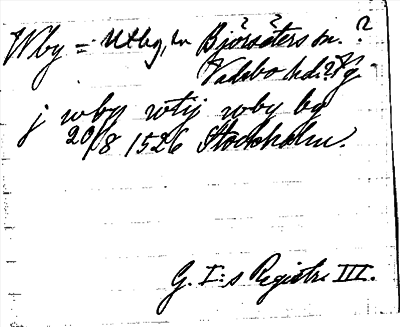 Wby = Utbg, in Björsäters sn. ?
Valebo hd. ? Vg.
j wby wtij wby by
20/8 1526 Stockholm.
G. I:s Registr. III.